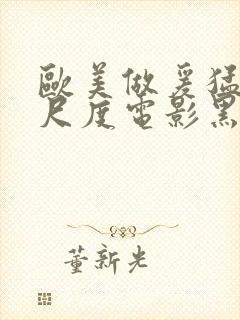 歐美做爰猛
尺度電影黑
董新光